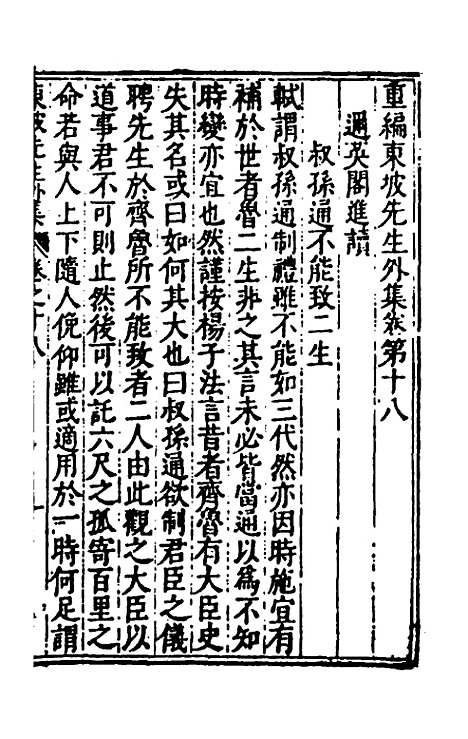 重編東坡先生外集卷第十八
邇英閣進讀
叔孫通不能致二生
軾謂叔孫通制禮雖不能如三代然亦因時施宜有
補於世者魯二生非之其言未必皆當通以為不知
時變亦宜也然謹按楊子法言昔者齊魯有大臣史
失其名或曰如何其大也曰叔孫通欲制君臣之儀
聘先生於齊魯所不能致者二人由此觀之大臣以
道事君不可則止然後可以託六尺之孤寄百里之
命若與人上下隨人俛仰雖或適用於一時何足謂
東坡先生外集 卷之十八